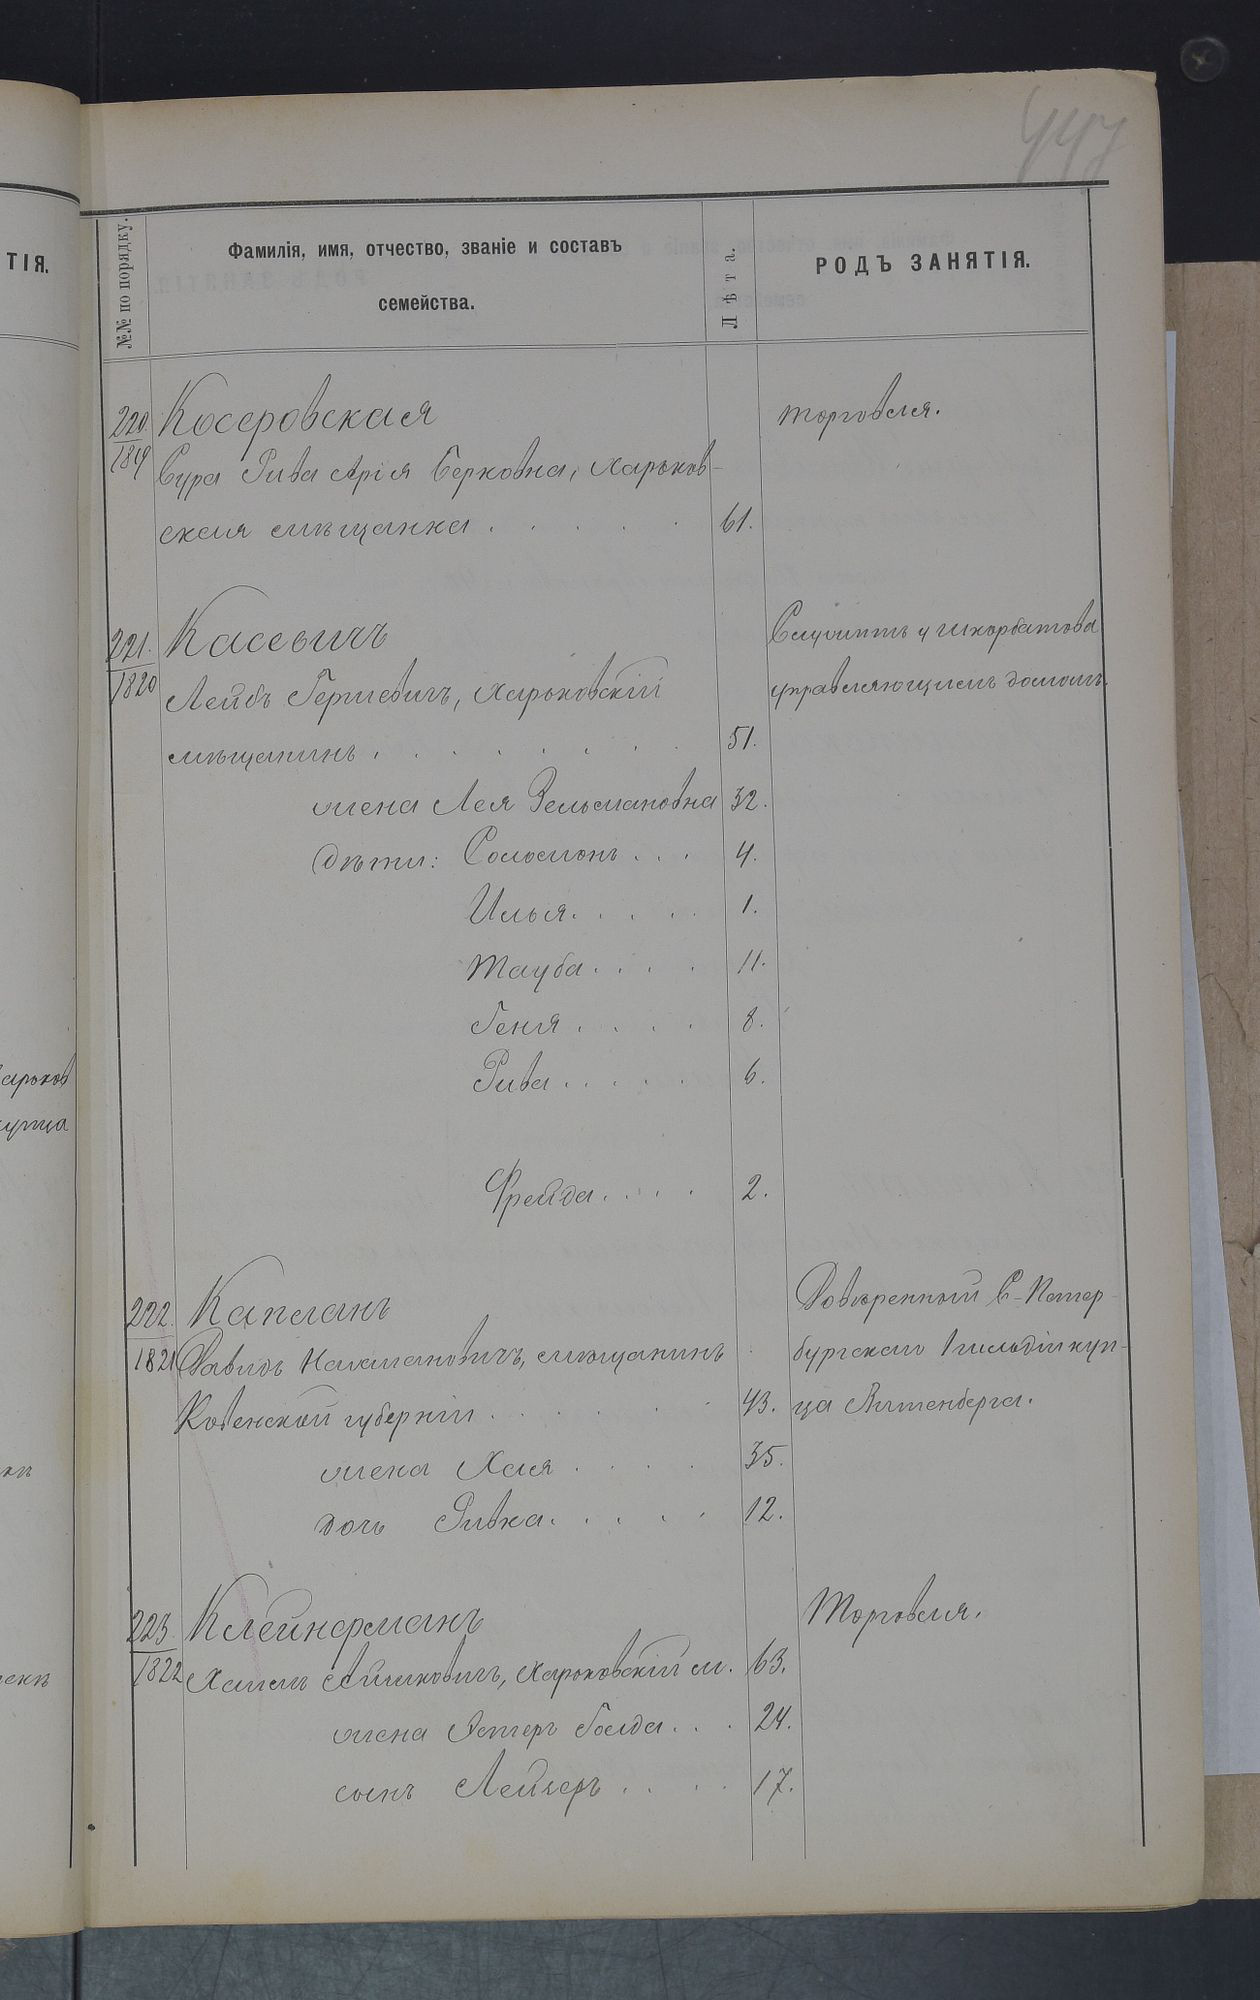 447
ТІЯ.
№№ по порядку.
Фамилія, имя, отчество, званіе и составъ
семейства.
Лѣта.
РОДЪ ЗАНЯТІЯ.
220 Косеровская торговля.
1819 Сура Рива Арія Берковна, Харьков-
ская мѣщанка . . . . . 61.
221. Касевичъ Служитъ у Шкорбатова
1820 Лейбъ Гершевичъ, Харьковскій управляющимъ домомъ.
мѣщанинъ . . . . . . . 51.
жена Лея Зельмановна 32.
дѣти: Соломонъ . . . 4.
Илья . . . . . 1.
Тауба . . . . 11.
Геня . . . . 8.
Рива . . . . . 6.
Фрейда . . . . 2.
222. Капланъ Довѣренный С-Петер-
1821 Давидъ Нахмановичъ, мѣщанинъ бургскаго 1 гильдіи куп-
Ковенской губерніи . . . . . . 43. ца
жена Хая . . . . 35.
дочь Ривка . . . . . 12.
223. Клейнерманъ Торговля.
1822 Харьковскій м. 63.
жена Эстеръ Голда . . . 24.
сынъ Лейзеръ . . . . 17.